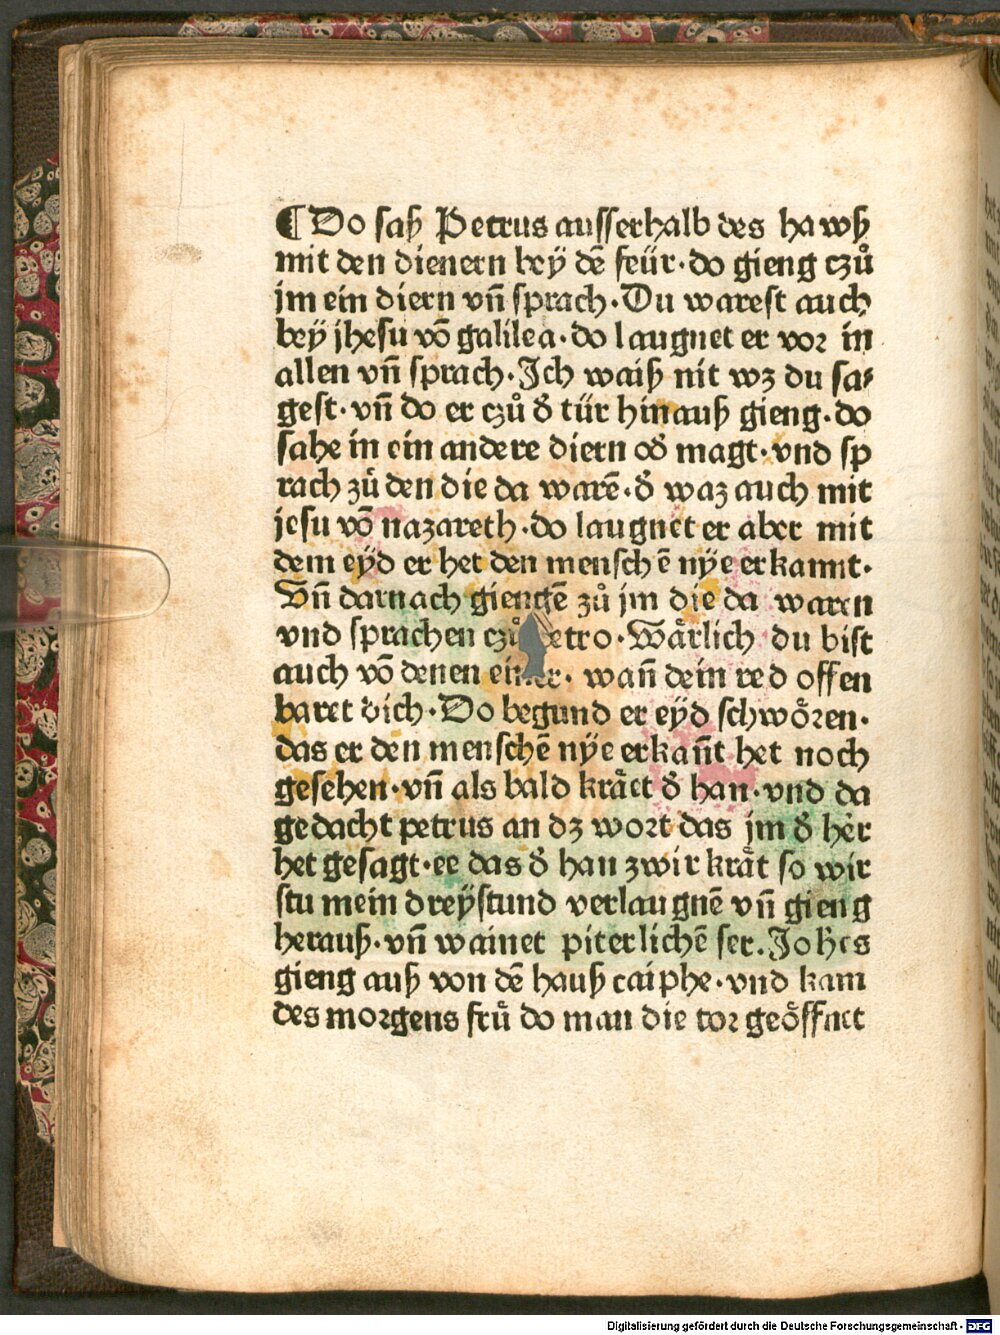 ⸿ Do saß Petrus ausserhalb des hawß
mit den dienern bey̋ dē feür·do gieng czů
jm ein diern vn̄ sprach·Du warest auch
bey̋ jhesu vō galilea·do laugnet er vor in
allen vn̄ sprach·Ich waiß nit wz du sa⸗
gest·vn̄ do er czů d̕ tür hinauß gieng·do
sahe in ein andere diern od̕ magt·vnd sp
rach zů den die da warē·d̕ waz auch mit
jesu vō nazareth·do laugnet er aber mit
dem ey̋d er het den menschē ny̋e erkannt·
Vn̄ darnach giengē zů jm die da waren
vnd sprachen czů etro·Wårlich du bist
auch vō denen einer·wan̄ dein red offen
baret dich·Do begund er ey̋d schwören·
das er den menschē ny̋e erkan̄t het noch
gesehen·vn̄ als bald krået d̕ han·vnd da
gedacht petrus an dz wort das jm d̕ her
het gesagt·ee das d̕ han zwir kråt so wir
stu mein drey̋stund verlaugnē vn̄ gieng
herauß·vn̄ wainet piterlichē ser.Johēs
gieng auß von dē hauß caiphe·vnd kam
des morgens frů do man die tor geöffnet
Digitalisierung gefördert durch die Deutsche Forschungsgemeinschaft - DFG